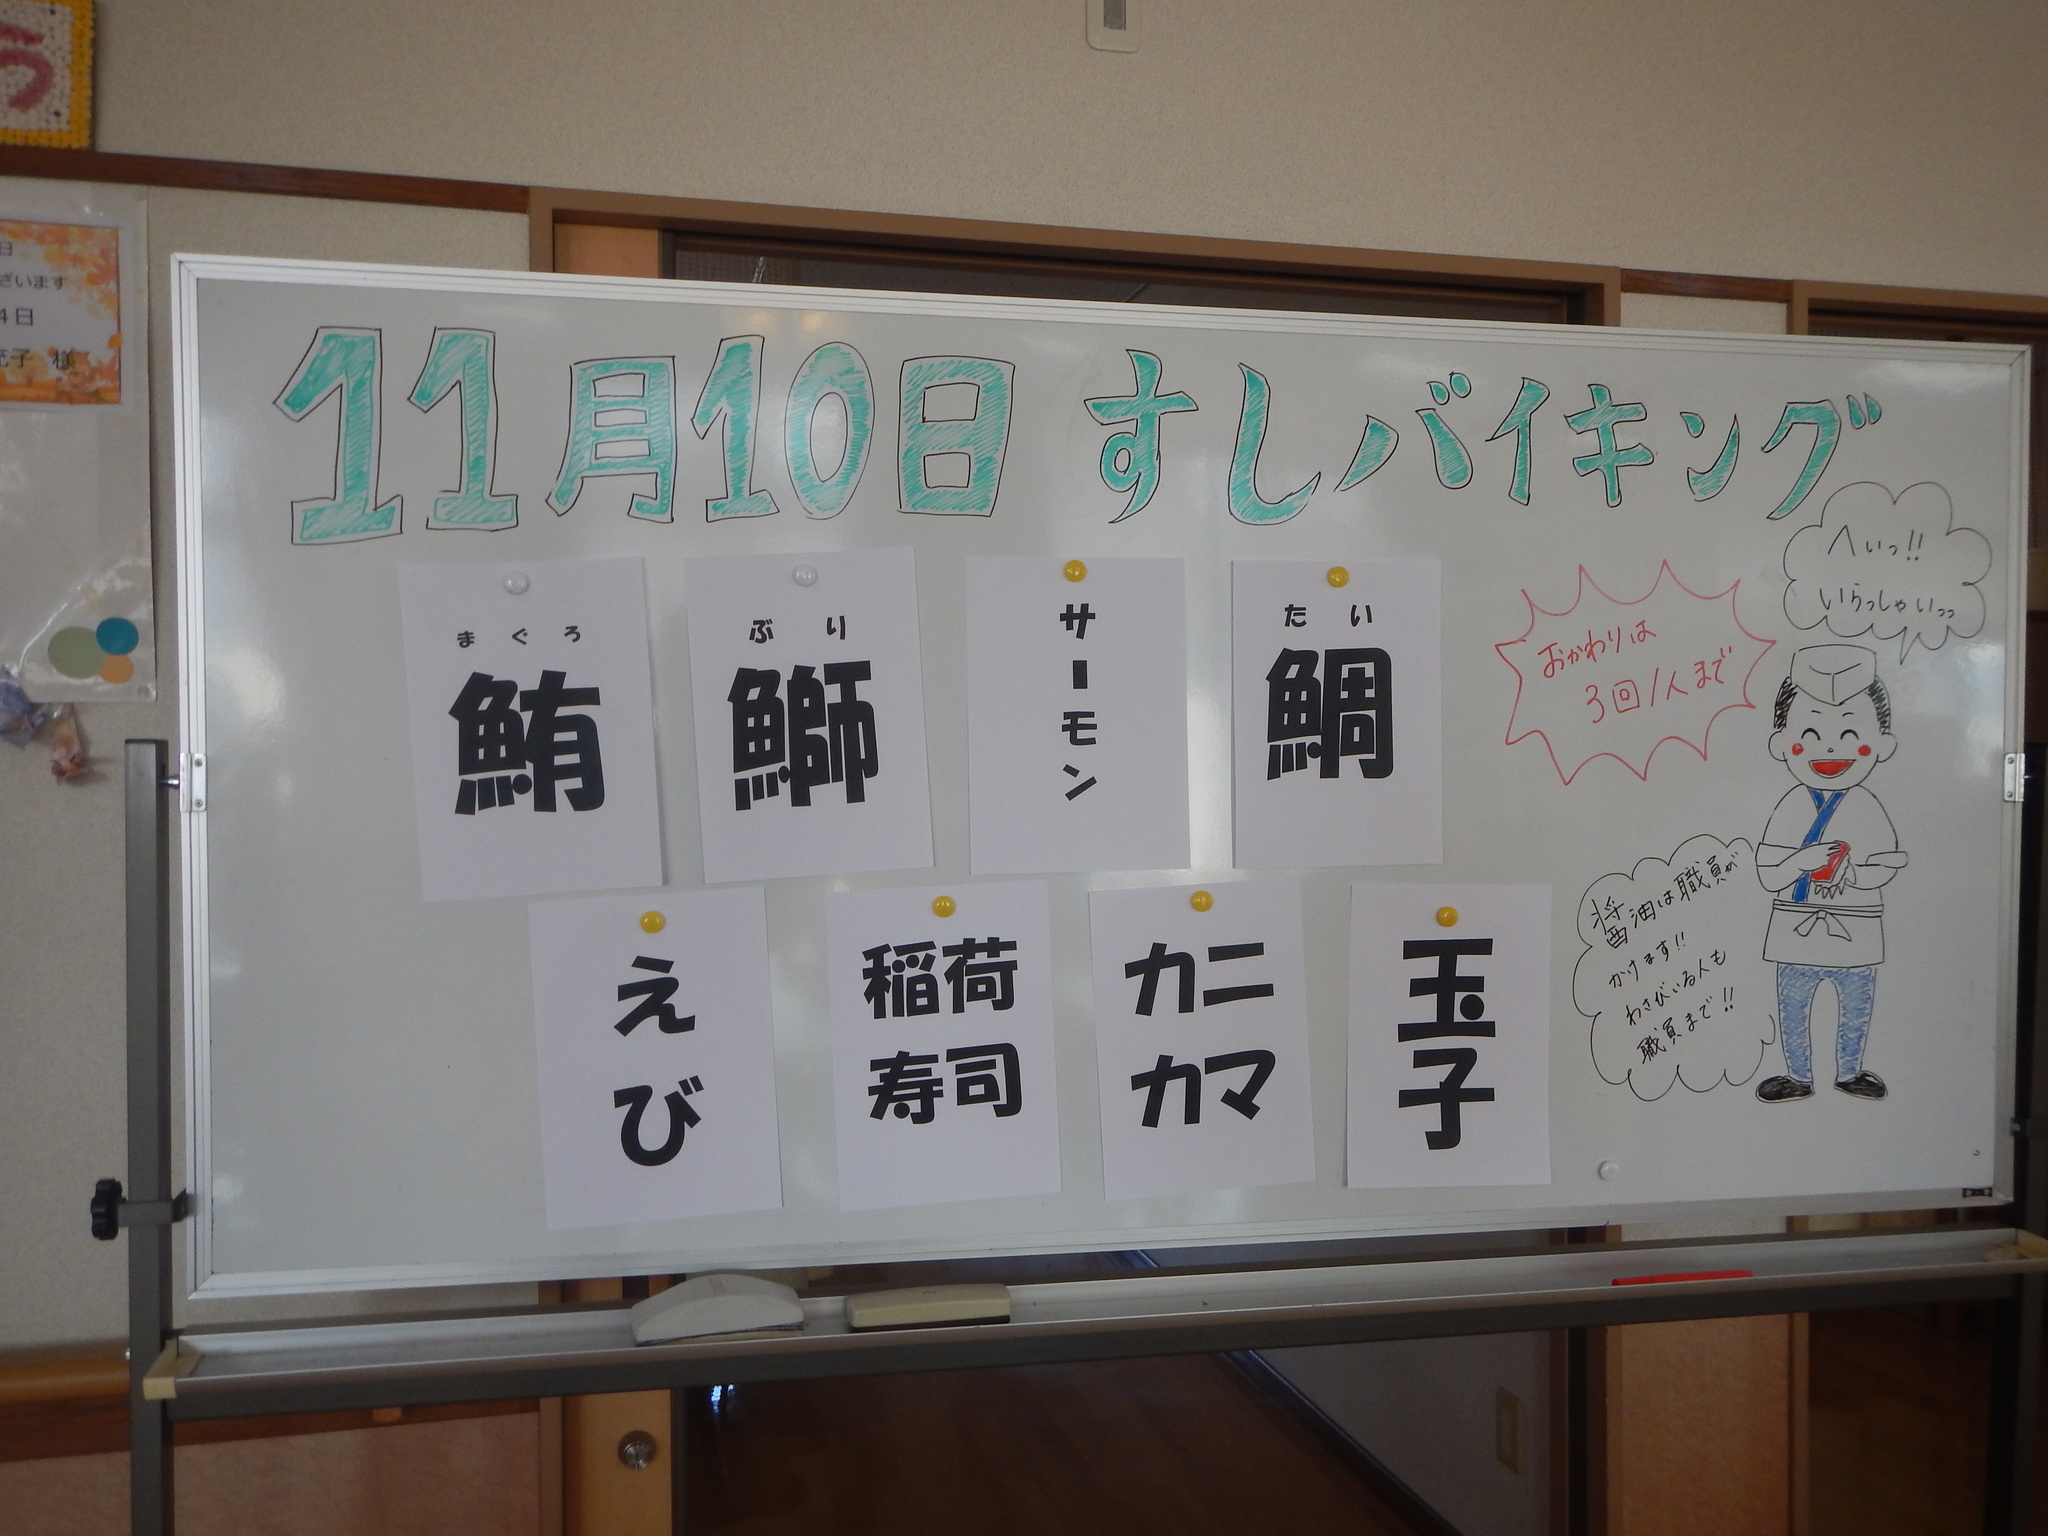 う
日
ざいます
4日
子 様
11月10日 すしバイキング
へいっ!!
いらっしゃいっっ
おかわりは
3回/人まで
まぐろ
鮪
ぶり
鰤
サーモン
たい
鯛
えび
稲荷
寿司
カニ
カマ
玉子
醤油は職員が
かけます!!
わさびいる人も
職員まで!!